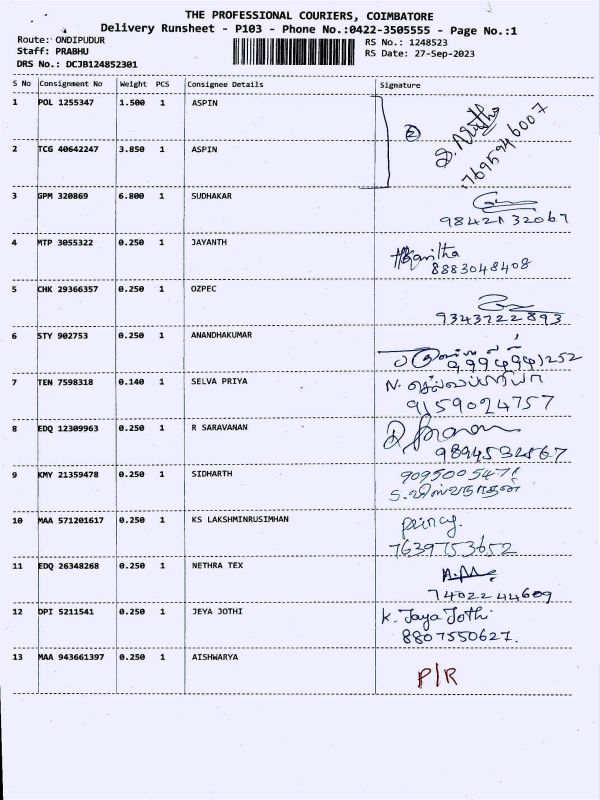 THE PROFESSIONAL COURIERS, COIMBATORE
Delivery Runsheet - P103 - Phone No.:0422-3505555 - Page No.:1
Route: ONDIPUDUR RS No.: 1248523
Staff: PRABHU RS Date: 27-Sep-2023
DRS No.: DCJB124852301
S No Consignment No Weight PCS Consignee Details Signature
1 POL 1255347 1.500 1 ASPIN
2
7695946007
2 TCG 40642247 3.850 1 ASPIN
3 GPM 320869 6.800 1 SUDHAKAR
9842132067
4 MTP 3055322 0.250 1 JAYANTH
Kavitha
8883048408
5 CHK 29366357 0.250 1 OZPEC
9343722893
6 STY 902753 0.250 1 ANANDHAKUMAR
7 TEN 7598318 0.140 1 SELVA PRIYA
N. செல்வப்ரியா
9159024757
8 EDQ 12309963 0.250 1 R SARAVANAN
9 KMY 21359478 0.250 1 SIDHARTH
S. விஸ்வநாதன்
10 MAA 571201617 0.250 1 KS LAKSHMINRUSIMHAN
7639753652
11 EDQ 26348268 0.250 1 NETHRA TEX
7402244609
12 DPI 5211541 0.250 1 JEYA JOTHI
K. Jaya Jothi
8807550627.
13 MAA 943661397 0.250 1 AISHWARYA
P/R